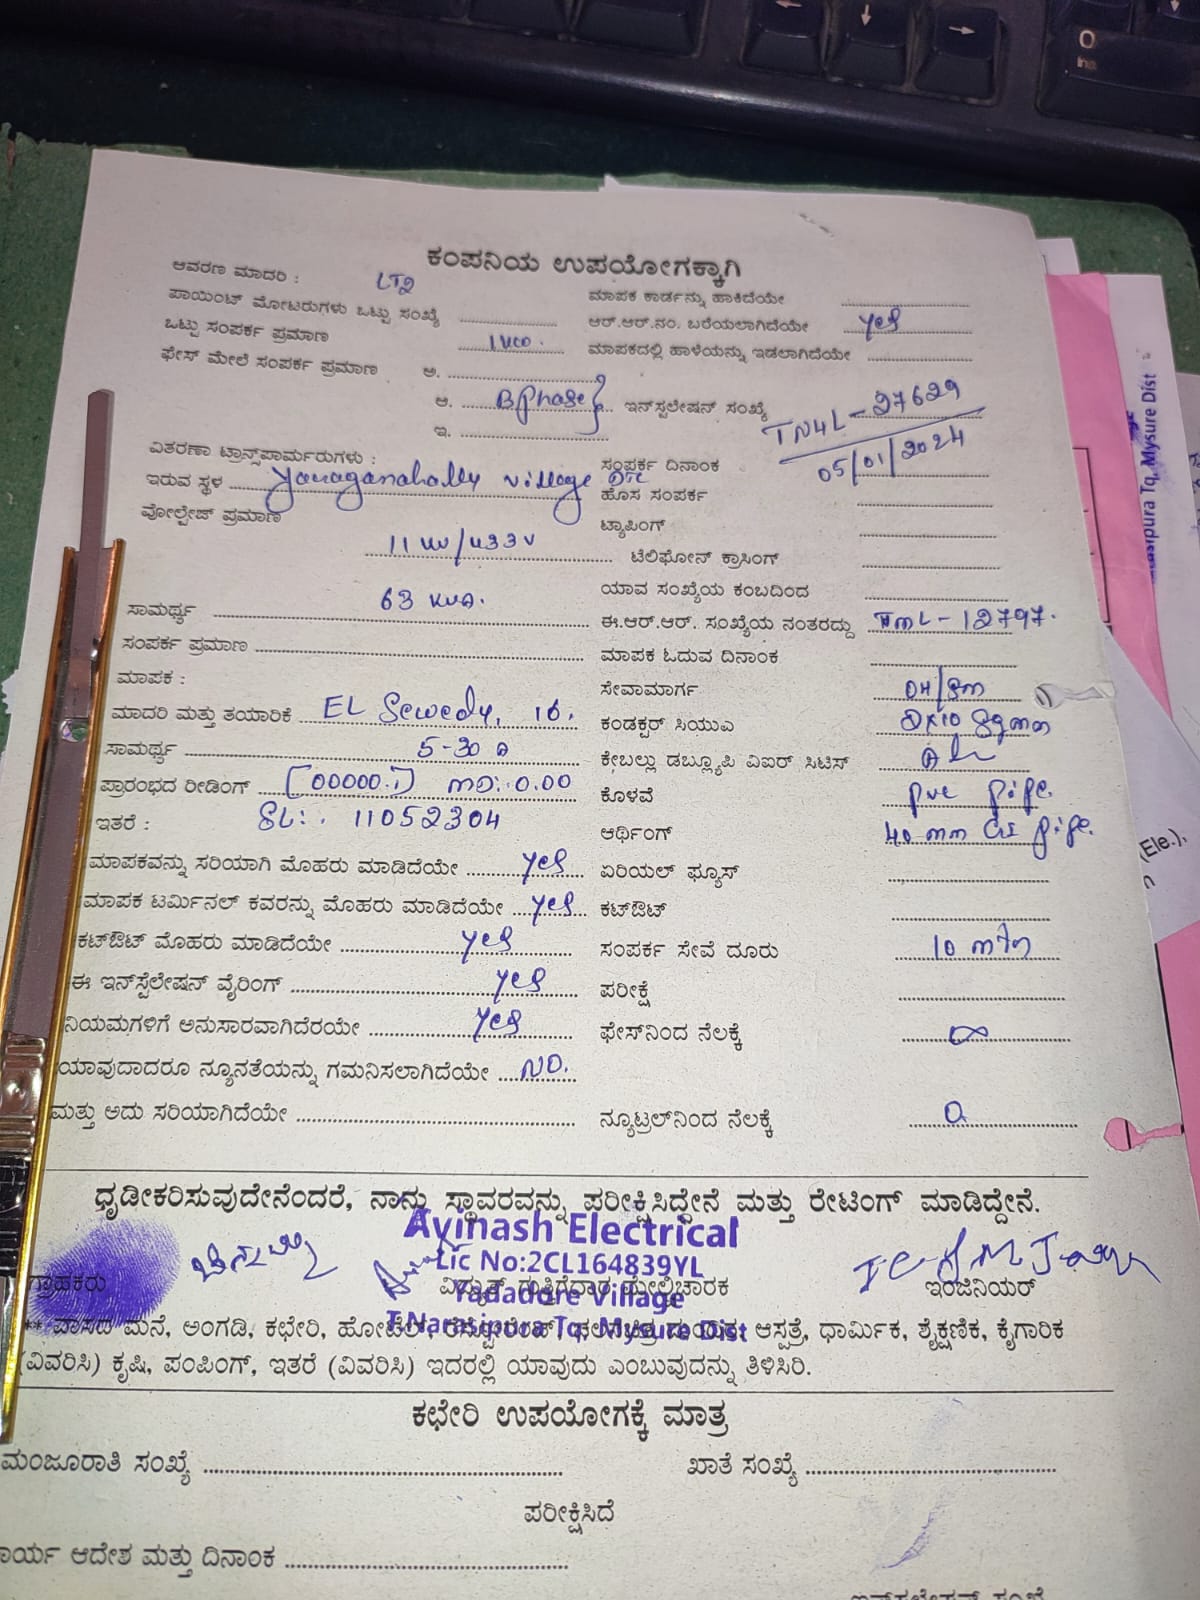 ಕಂಪನಿಯ ಉಪಯೋಗಕ್ಕಾಗಿ
ಆವರಣ ಮಾದರಿ : LT2
ಮಾಪಕ ಕಾರ್ಡನ್ನು ಹಾಕಿದೆಯೇ
ಪಾಯಿಂಟ್ ಮೋಟರುಗಳು ಒಟ್ಟು ಸಂಖ್ಯೆ
ಆರ್.ಆರ್.ನಂ. ಬರೆಯಲಾಗಿದೆಯೇ yes
ಒಟ್ಟು ಸಂಪರ್ಕ ಪ್ರಮಾಣ
ಮಾಪಕದಲ್ಲಿ ಹಾಳೆಯನ್ನು ಇಡಲಾಗಿದೆಯೇ
ಫೇಸ್ ಮೇಲೆ ಸಂಪರ್ಕ ಪ್ರಮಾಣ ಅ.
ಆ. B Phase ಇನ್‌ಸ್ಟಲೇಷನ್ ಸಂಖ್ಯೆ TN4L-27629
ಇ.
ವಿತರಣಾ ಟ್ರಾನ್ಸ್‌ಫಾರ್ಮರುಗಳು :
ಸಂಪರ್ಕ ದಿನಾಂಕ 05/01/2024
ಇರುವ ಸ್ಥಳ Yaraganahally village
ಹೊಸ ಸಂಪರ್ಕ
ವೋಲ್ಟೇಜ್ ಪ್ರಮಾಣ 11 kv/433v
ಟ್ಯಾಪಿಂಗ್
ಟೆಲಿಫೋನ್ ಕ್ರಾಸಿಂಗ್
ಯಾವ ಸಂಖ್ಯೆಯ ಕಂಬದಿಂದ
ಸಾಮರ್ಥ್ಯ 63 KVA.
ಈ.ಆರ್.ಆರ್. ಸಂಖ್ಯೆಯ ನಂತರದ್ದು TML-12797.
ಸಂಪರ್ಕ ಪ್ರಮಾಣ
ಮಾಪಕ ಓದುವ ದಿನಾಂಕ
ಮಾಪಕ :
ಸೇವಾಮಾರ್ಗ OH/SM
ಮಾದರಿ ಮತ್ತು ತಯಾರಿಕೆ EL Sewedy, 10.
ಕಂಡಕ್ಟರ್ ಸಿಯುಎ 2x10 Sqmm
ಸಾಮರ್ಥ್ಯ 5-30 A
ಕೇಬಲ್ಲು ಡಬ್ಲ್ಯೂಪಿ ವಿಐರ್ ಸಿಟಿಸ್
ಪ್ರಾರಂಭದ ರೀಡಿಂಗ್ [00000.1] MD:0.00
ಕೊಳವೆ pvc pipe.
ಇತರೆ : SL: 11052304
ಆರ್ಥಿಂಗ್ 40 mm GI pipe.
ಮಾಪಕವನ್ನು ಸರಿಯಾಗಿ ಮೊಹರು ಮಾಡಿದೆಯೇ yes
ಏರಿಯಲ್ ಫ್ಯೂಸ್
ಮಾಪಕ ಟರ್ಮಿನಲ್ ಕವರನ್ನು ಮೊಹರು ಮಾಡಿದೆಯೇ yes
ಕಟ್‌ಔಟ್
ಕಟ್‌ಔಟ್ ಮೊಹರು ಮಾಡಿದೆಯೇ yes
ಸಂಪರ್ಕ ಸೇವೆ ದೂರು 10 mtr
ಈ ಇನ್‌ಸ್ಟೆಲೇಷನ್ ವೈರಿಂಗ್ yes
ಪರೀಕ್ಷೆ
ನಿಯಮಗಳಿಗೆ ಅನುಸಾರವಾಗಿದೆರಯೇ yes
ಫೇಸ್‌ನಿಂದ ನೆಲಕ್ಕೆ ∞
ಯಾವುದಾದರೂ ನ್ಯೂನತೆಯನ್ನು ಗಮನಿಸಲಾಗಿದೆಯೇ NO.
ಮತ್ತು ಅದು ಸರಿಯಾಗಿದೆಯೇ
ನ್ಯೂಟ್ರಲ್‌ನಿಂದ ನೆಲಕ್ಕೆ 0
ಧೃಡೀಕರಿಸುವುದೇನೆಂದರೆ, ನಾನು ಸ್ಥಾವರವನ್ನು ಪರೀಕ್ಷಿಸಿದ್ದೇನೆ ಮತ್ತು ರೇಟಿಂಗ್ ಮಾಡಿದ್ದೇನೆ.
Avinash Electrical
Lic No:2CL164839YL
ಗ್ರಾಹಕರು ವಿದ್ಯುತ್ ಗುತ್ತಿಗೆದಾರ ಮೇಲ್ವಿಚಾರಕ ಇಂಜಿನಿಯರ್
Yadadore Village
T.Narasipura Tq, Mysure Dist
** ವಾಸದ ಮನೆ, ಅಂಗಡಿ, ಕಛೇರಿ, ಹೋಟೆಲ್, ಆಸ್ಪತ್ರೆ, ಧಾರ್ಮಿಕ, ಶೈಕ್ಷಣಿಕ, ಕೈಗಾರಿಕ
(ವಿವರಿಸಿ) ಕೃಷಿ, ಪಂಪಿಂಗ್, ಇತರೆ (ವಿವರಿಸಿ) ಇದರಲ್ಲಿ ಯಾವುದು ಎಂಬುವುದನ್ನು ತಿಳಿಸಿರಿ.
ಕಛೇರಿ ಉಪಯೋಗಕ್ಕೆ ಮಾತ್ರ
ಮಂಜೂರಾತಿ ಸಂಖ್ಯೆ
ಖಾತೆ ಸಂಖ್ಯೆ
ಪರೀಕ್ಷಿಸಿದೆ
ಆದೇಶ ಮತ್ತು ದಿನಾಂಕ
Mysure Dist
(Ele.),
0
Ins